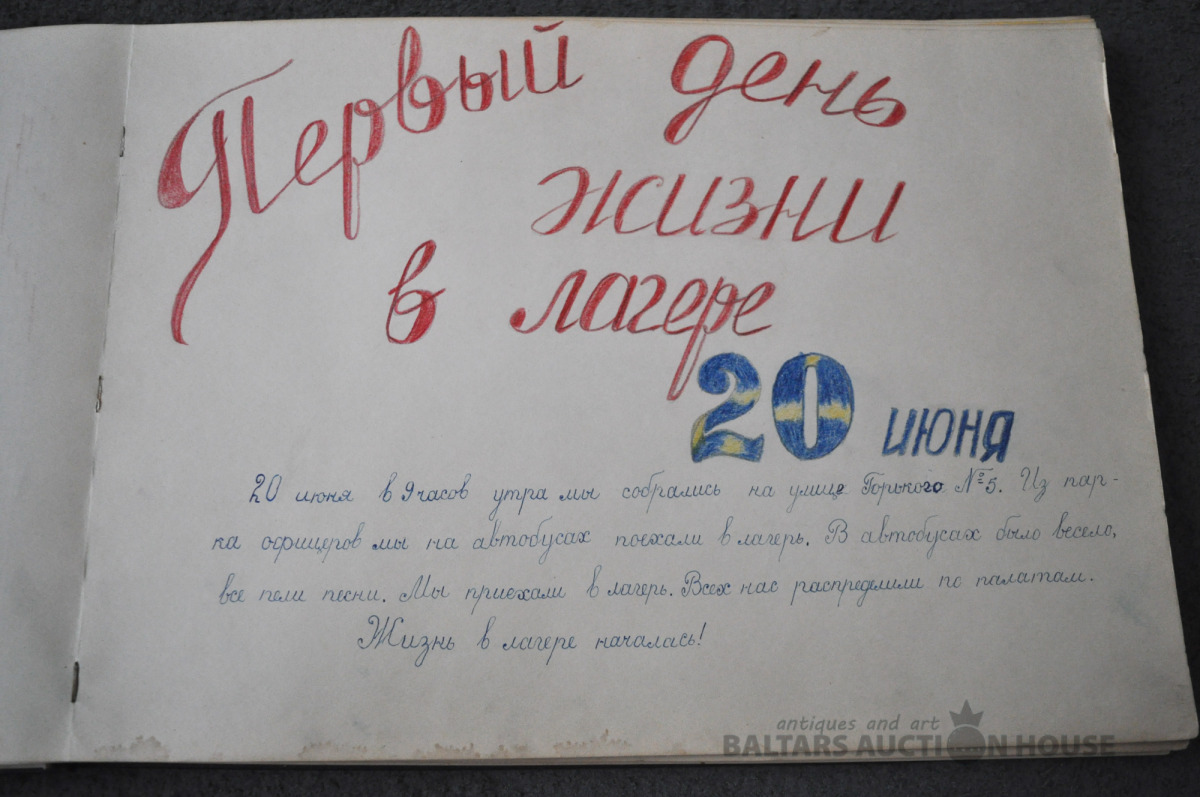 Первый день
жизни
в лагере
20 июня
20 июня в 9 часов утра мы собрались на улице Горького №5. Из пар-
ка офицеров мы на автобусах поехали в лагерь. В автобусах было весело,
все пели песни. Мы приехали в лагерь. Всех нас распределили по палатам.
Жизнь в лагере началась!
antiques and art
BALTARS AUCTION HOUSE